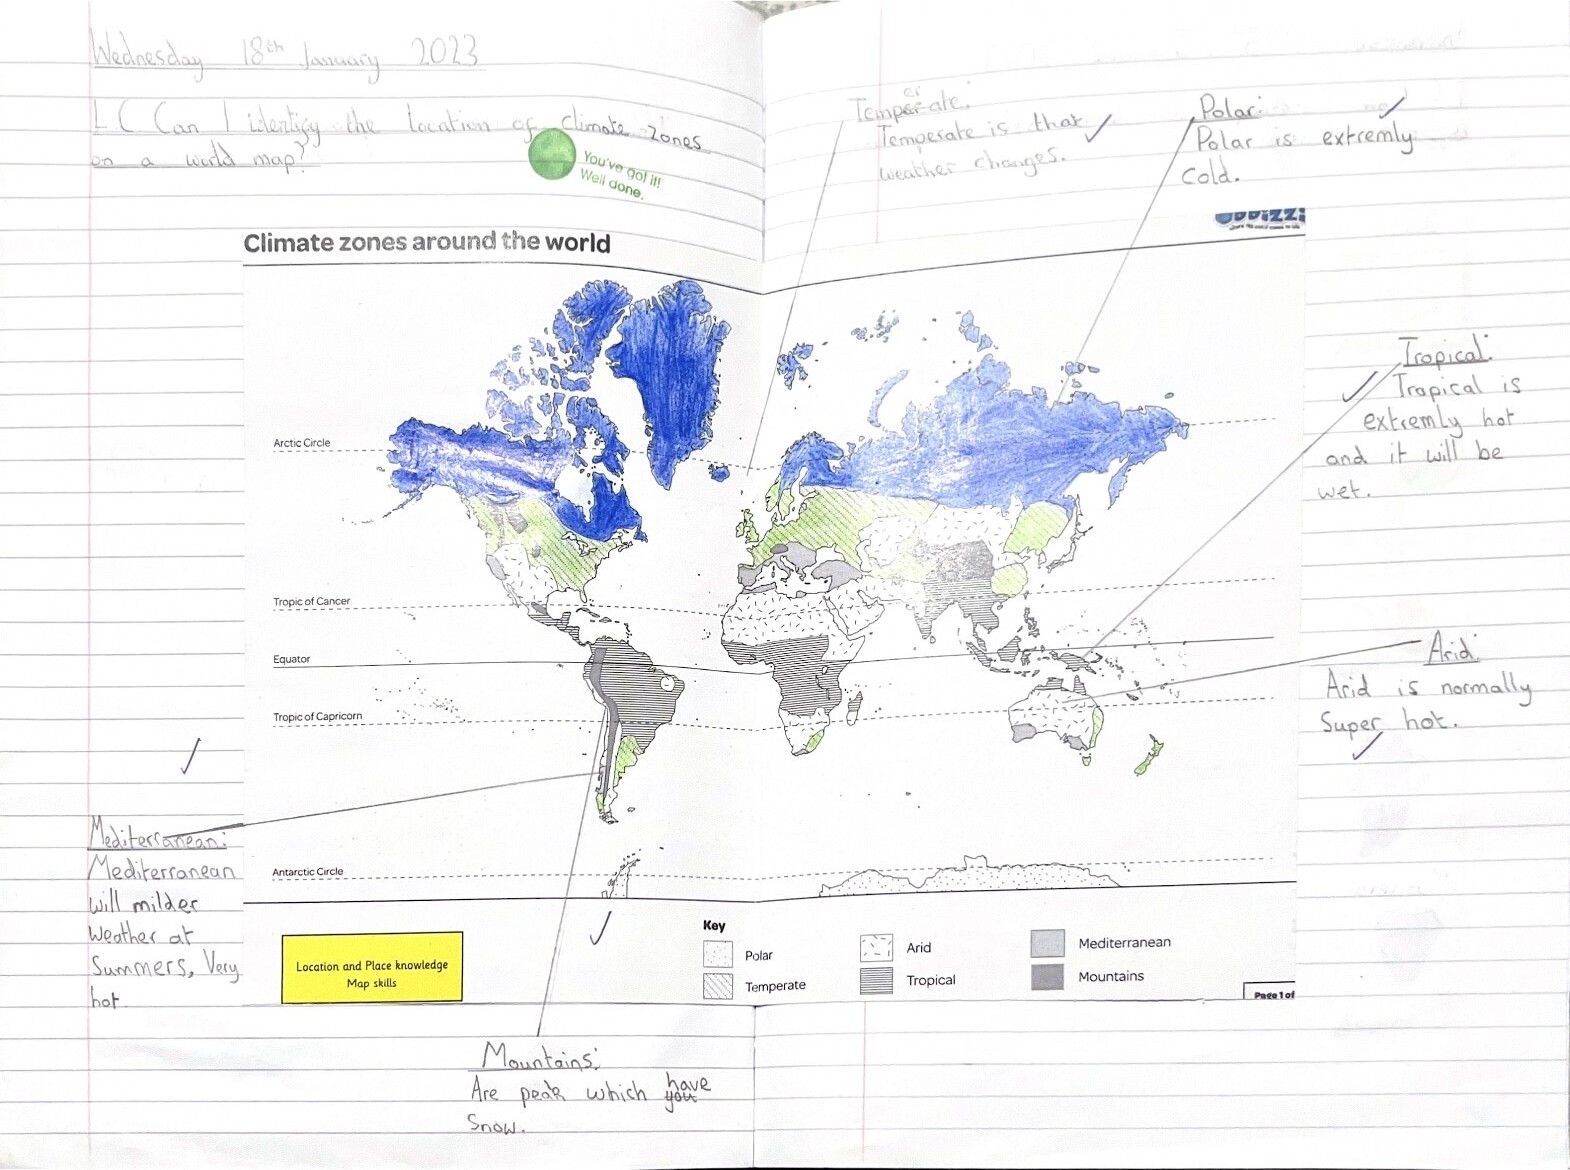 Wednesday 18th January 2023
L.C Can I identify the location of climate zones
on a world map?
You've got it!
Well done.
Temperate:
er
Temperate is that
weather changes.
Polar:
Polar is extremly
cold.
Climate zones around the world
Tropical:
Tropical is
extremly hot
and it will be
wet.
Arctic Circle
Tropic of Cancer
Equator
Tropic of Capricorn
Antarctic Circle
Arid:
Arid is normally
Super hot.
Mediterranean:
Mediterranean
will milder
weather at
Summers, Very
hot.
Key
Polar
Temperate
Arid
Tropical
Mediterranean
Mountains
Location and Place knowledge
Map skills
Page 1 of
Mountains:
have
Are peak which you
Snow.